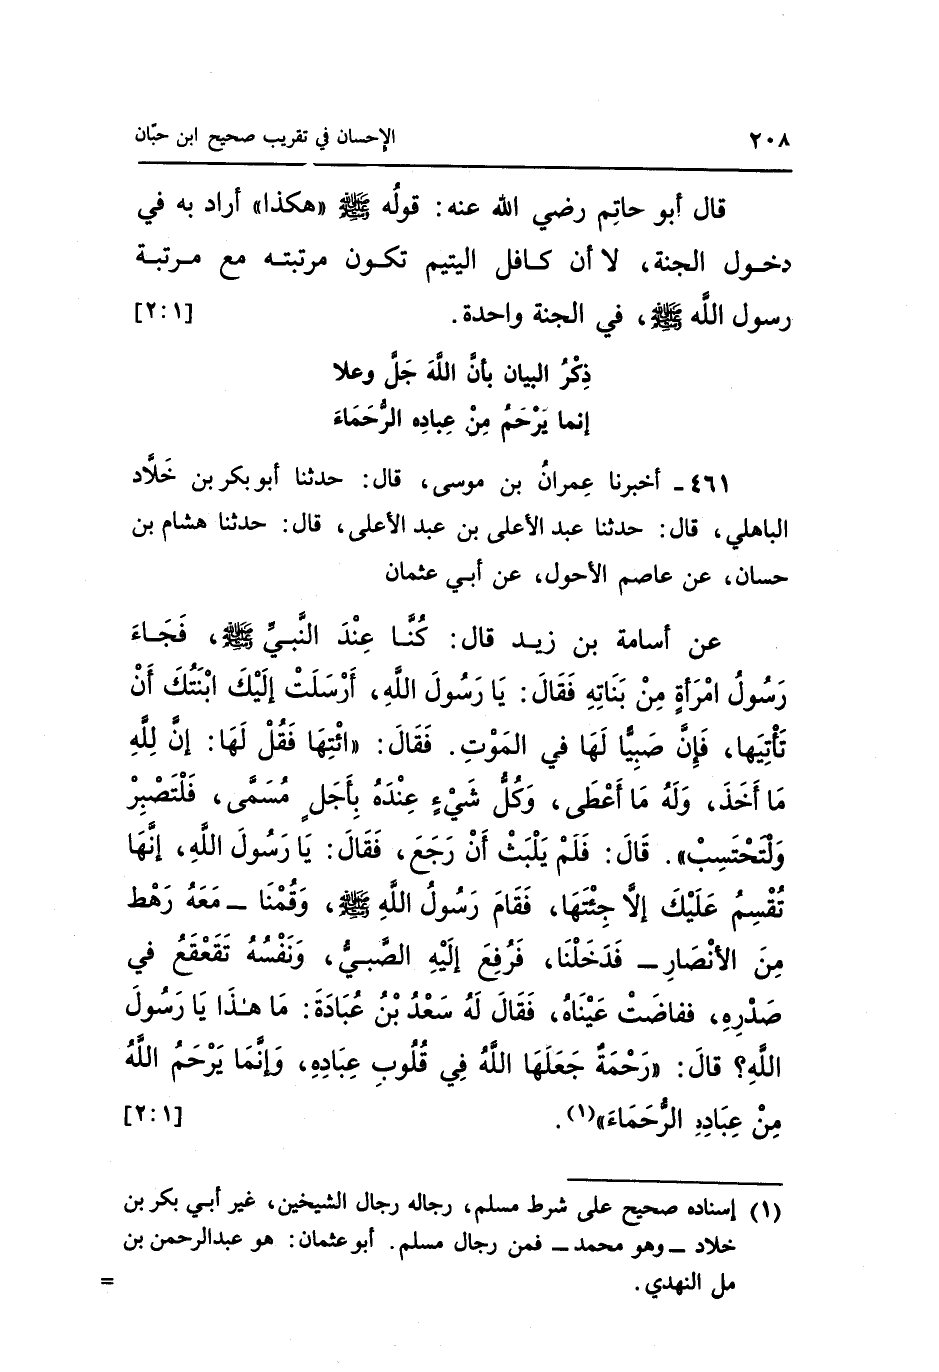 ٢٠٨ الإحسان في تقريب صحيح ابن حبّان
قال أبو حاتِم رضي الله عنه: قولُه ﷺ «هكذا» أراد به في
دخـول الجنة، لا أن كـافل اليتيم تكـون مرتبتـه مع مـرتبـة
رسول اللَّه ﷺ، في الجنة واحدة. [٢:١]
ذِكْرُ البيان بأنَّ اللَّهَ جَلَّ وعلا
إنما يَرْحَمُ مِنْ عِباده الرُّحَمَاءَ
٤٦١ ـ أخبرنا عِمرانُ بن موسى، قال: حدثنا أبو بكر بن خَلَّاد
الباهلي، قال: حدثنا عبد الأعلى بن عبد الأعلى، قال: حدثنا هشام بن
حسان، عن عاصم الأحول، عن أبي عثمان
عن أسامة بن زيـد قال: كُنَّـا عِنْدَ النَّبـيِّ ﷺ، فَجَـاءَ
رَسُولُ امْرَأةٍ مِنْ بَنَاتِهِ فَقَالَ: يَا رَسُولَ اللَّهِ، أَرْسَلَتْ إلَيْكَ ابْنَتُكَ أنْ
تَأْتِيَها، فَإنَّ صَبِيًّا لَهَا في المَوْتِ. فَقَالَ: «ائْتِهَا فَقُلْ لَهَا: إنَّ لِلَّهِ
مَا أَخَذَ، وَلَهُ مَا أَعْطَى، وَكُلُّ شَيْءٍ عِنْدَهُ بِأَجَلٍ مُسَمَّى، فَلْتَصْبِرْ
وَلْتَحْتَسِبْ». قَالَ: فَلَمْ يَلْبَثْ أنْ رَجَعَ، فَقَالَ: يَا رَسُولَ اللَّهِ، إنَّهَا
تُقْسِمُ عَلَيْكَ إلَّا جِئْتَهَا، فَقَامَ رَسُولُ اللَّهِ ﷺ، وَقُمْنَا ـ مَعَهُ رَهْط
مِنَ الأنْصَارِ ـ فَدَخَلْنَا، فَرُفِعَ إلَيْهِ الصَّبـيُّ، وَنَفْسُهُ تَقَعْقَعُ في
صَدْرِهِ، ففاضَتْ عَيْنَاهُ، فَقَالَ لَهُ سَعْدُ بْنُ عُبَادَةَ: مَا هٰذَا يَا رَسُولَ
اللَّهِ؟ قالَ: «رَحْمَةٌ جَعَلَهَا اللَّهُ فِي قُلُوبِ عِبَادِهِ، وَإنَّمَا يَرْحَمُ اللَّهُ
مِنْ عِبَادِهِ الرُّحَمَاءَ»(١). [٢:١]
(١) إسناده صحيح على شرط مسلم، رجاله رجال الشيخين، غير أبـي بكر بن
خلاد ـ وهو محمد ـ فمن رجال مسلم. أبو عثمان: هو عبدالرحمن بن
مل النهدي. =